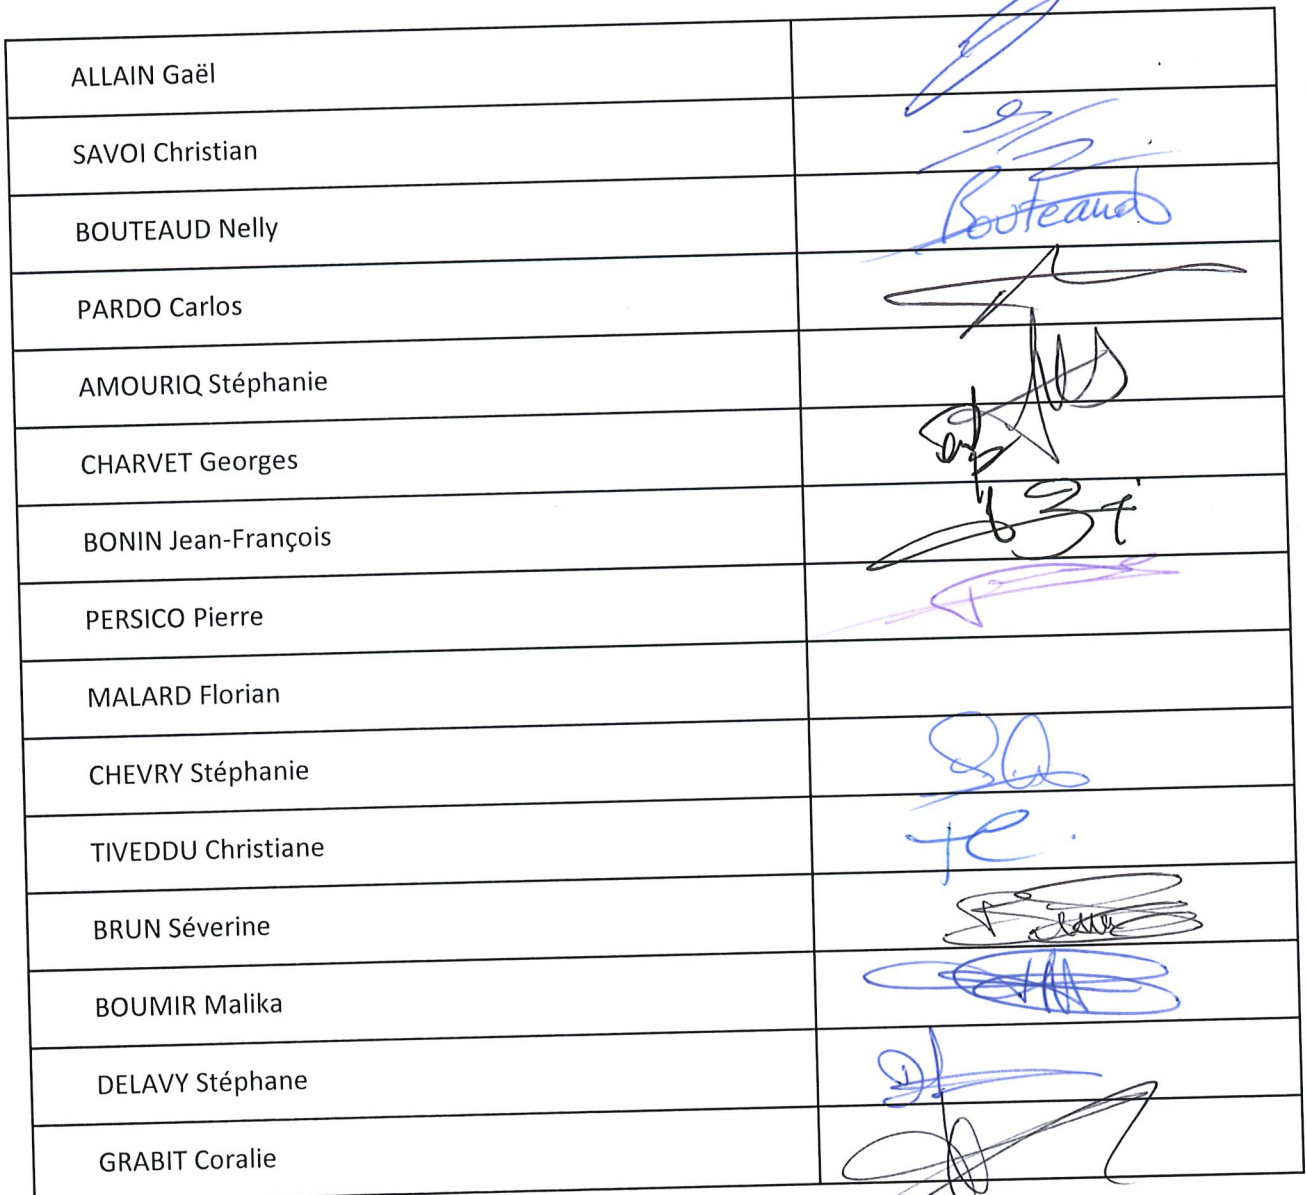 ALLAIN Gaël
SAVOI Christian
BOUTEAUD Nelly Bouteaud
PARDO Carlos
AMOURIQ Stéphanie
CHARVET Georges
BONIN Jean-François
PERSICO Pierre
MALARD Florian
CHEVRY Stéphanie
TIVEDDU Christiane
BRUN Séverine
BOUMIR Malika
DELAVY Stéphane
GRABIT Coralie